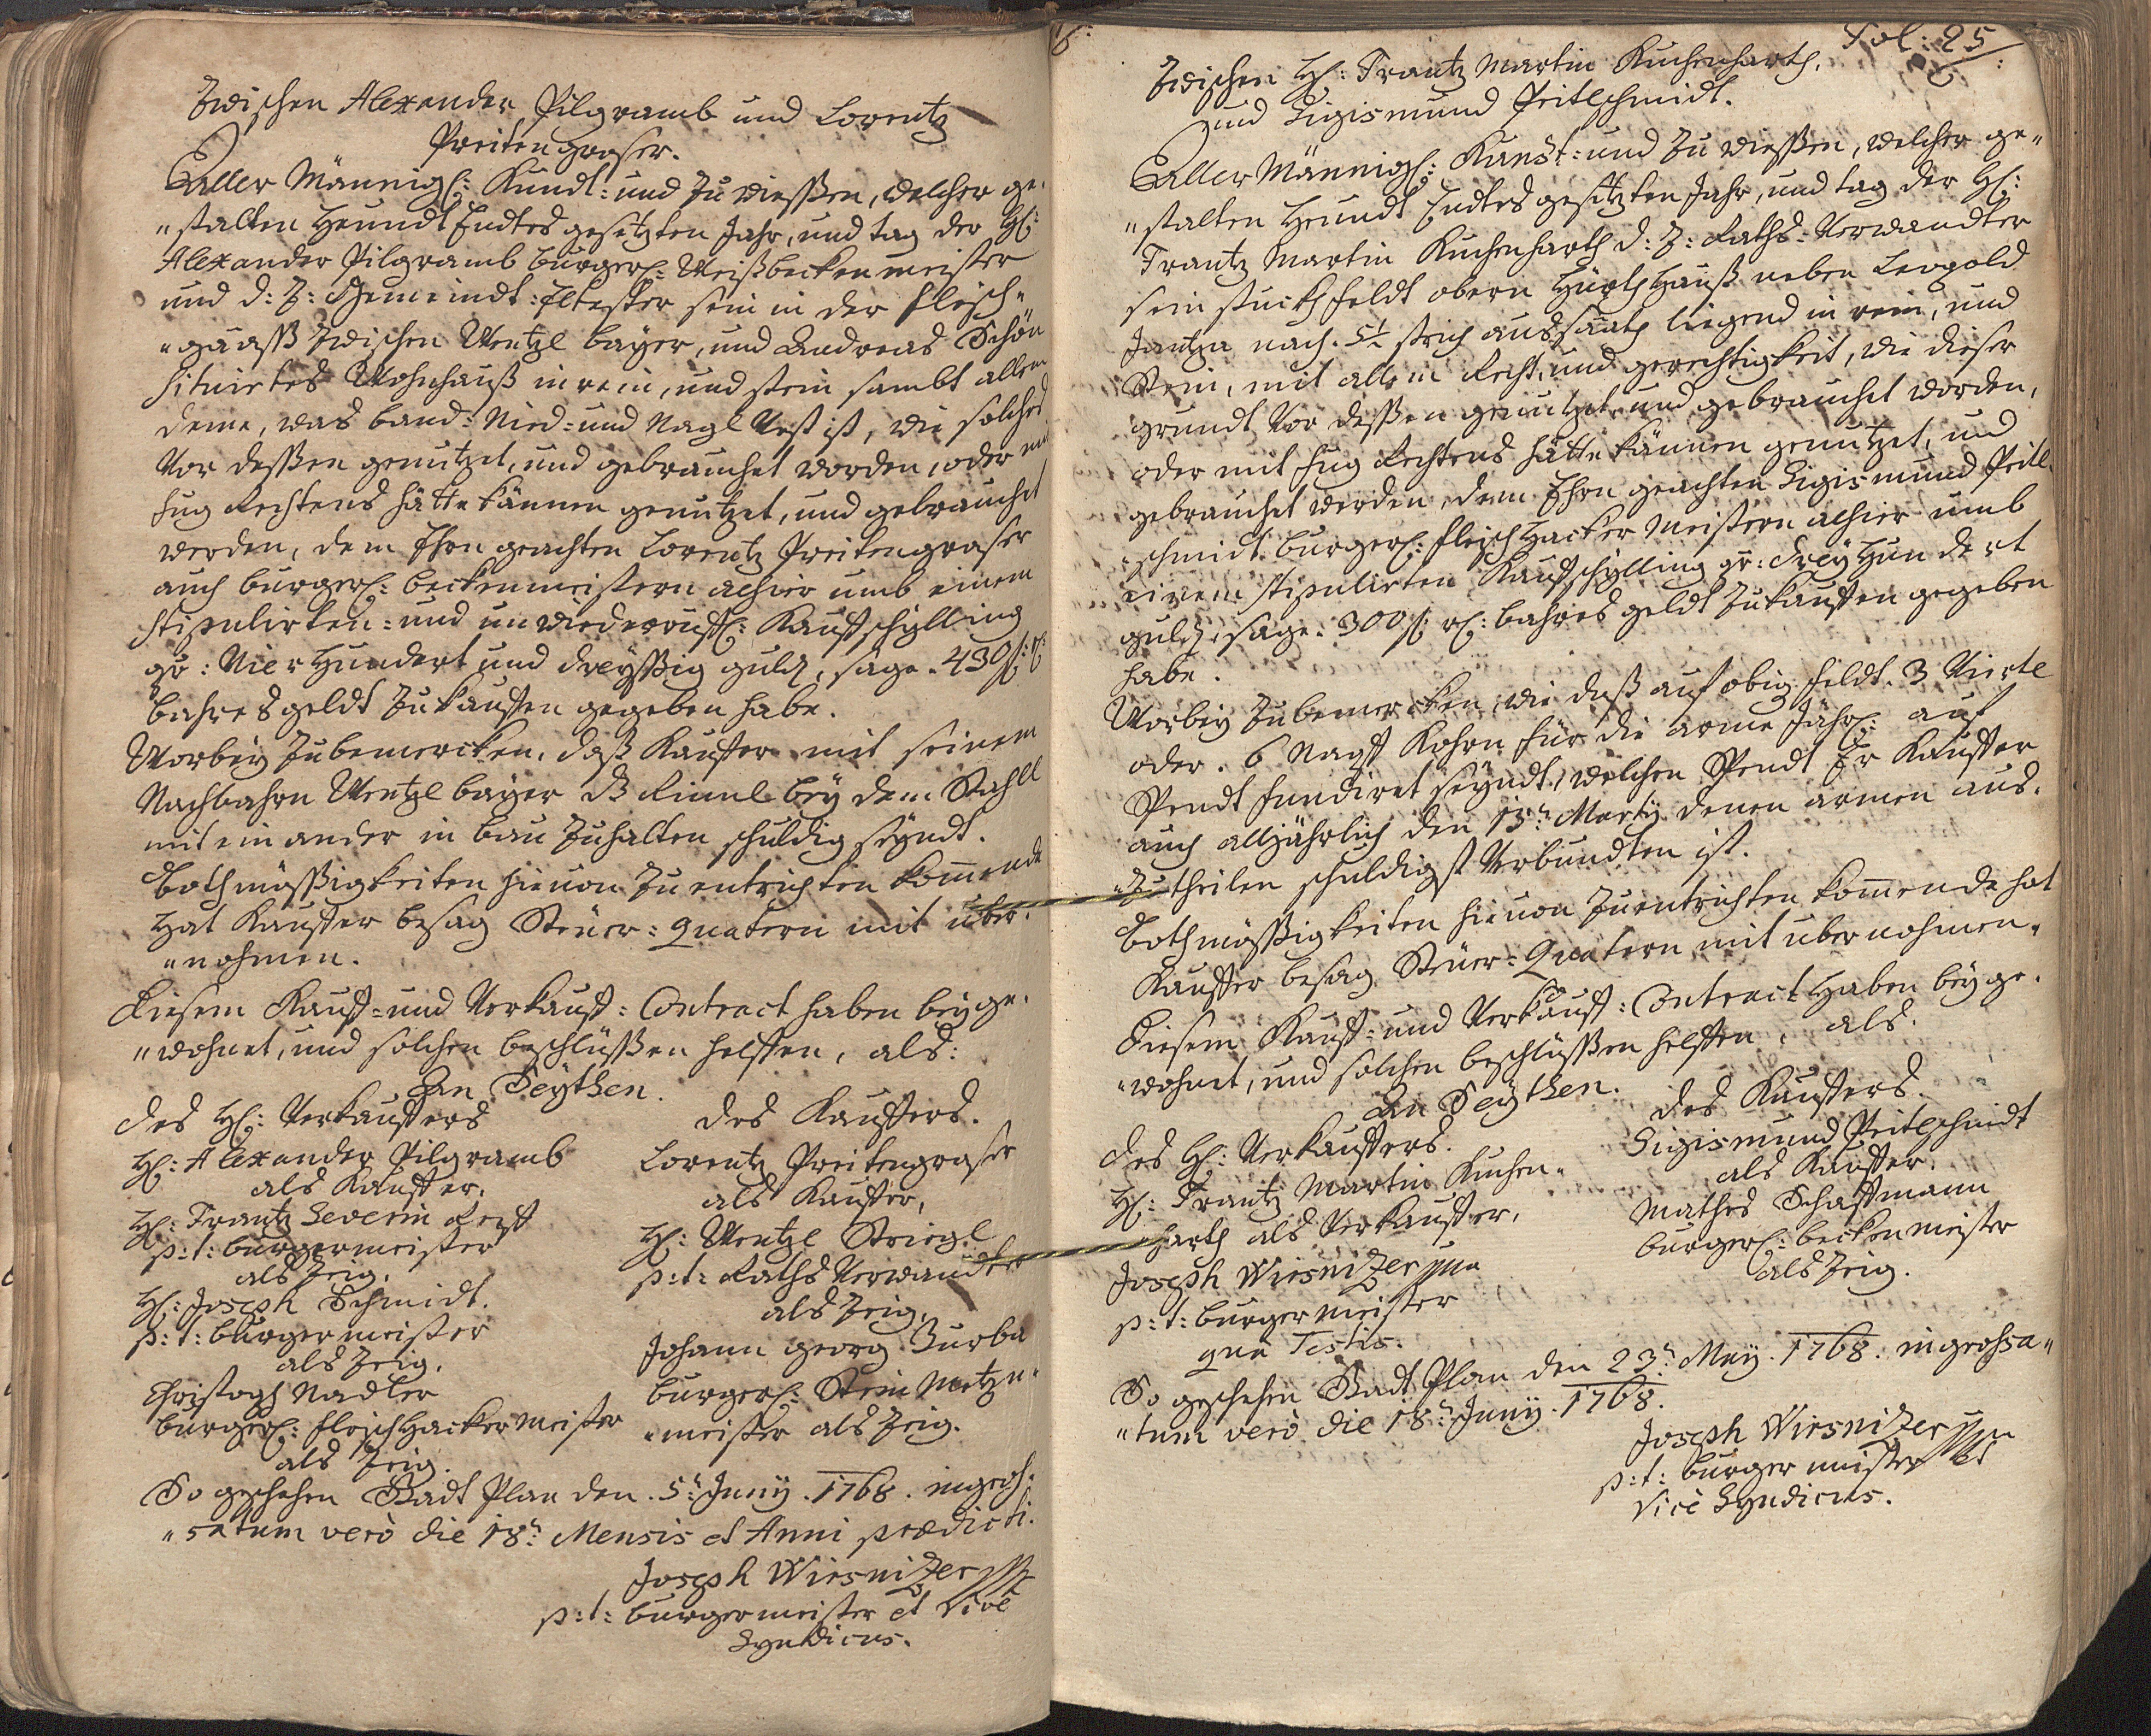 Zwischen Alexander Pilgramb und Lorentz
Preitengraser.
Aller Männigl: Kundt: und zu wiessen, welcher ge„
„stalten heundt Endtes gesetzten Jahr, und tag der H:
Alexander Pilgramb burgerl: Weißbecken meister
und d: Z: Gemeindt: Eltester sein in der fleisch„
„gaasß zwischen Wentzl bayer, und Andreas Schön
situirtes Wohnhauß in rein, und stein sambt allem
deme, was band: Nied: und Nagl Vest ist, wie solches
Vor dessen genutzet, und gebrauchet worden, oder mit
fug Rechtens hätte können genutzet, und gebrauchet
werden, dem Ehrn geachten Lorentz Preitengraser
auch burgerl: beckenmeistern alhier umb einem
stipulirten: und unwiederruffl: Kauffschylling
gr: Vier Hundert und dreyssig guld, sage. 430 f: r:
bahres geldt zu kauffen gegeben habe.
Worbey zubemercken, daß Kauffer mit seinem
Nachbahrn Wentzl bayer die Rinnl bey dem Stahll
mit ein ander in bau zuhalten schuldig seyndt.
Bothmässigkeiten hievon zu entrichten kommende
hat Kauffer besag Steuer: quatern mit über„
„nohmen.
Diesem Kauff: und Verkauff: Contract haben beyge„
„wohnet, und solchen beschlüssen helffen, als:
An Seythen.
des H: Verkauffers
H: Alexander Pilgramb
als Kauffer.
H: Frantz Severin
p: t: burgermeister
als Zeig.
H: Joseph Schmidt.
p: t: burgermeister
als Zeig.
Christoph Nadler
burgerl: fleischhacker meister
als Zeig.
des Kauffers.
Lorentz Preitengraser
als Kauffer,
H: Wentzl Striegl
p: t: Raths Verwandter
als Zeig.
Johann georg Zurba
burgerl: Stein Metzn„
„meister als Zeig.
So geschehen Stadt Plan den. 5t: Juny. 1768. ingros„
„satum verò die 18t: Mensis et Anni praedicti.
Joseph Wiesnizer
p: t: burgermeister et Vice
Syndicus.
Fol: 25
Zwischen H: Frantz Martin Kuchenharth,
und Sigismund Peitlschmidt.
Aller Männigl: Kundt: und zu wiessen, welcher ge„
„stalten heundt Endtes gesetzten Jahr, und tag der H:
Frantz Martin Kuchenharth d: Z: Raths: Verwandter
sein stuckh feldt obern Hürth Hauß neben Leopold
nach. 5½ strich aussaath liegend in rein, und
Stein, mit allem Recht, und gerechtigkeit, wie dieser
grundt Vor dessen genutzet, und gebrauchet worden,
oder mit fug Rechtens hätte können genutzet, und
gebrauchet werden, dem Ehrn geachten Sigismund Peitl„
„schmidt burgerl: fleischhacker meistern alhier umb
einem stipulirten Kauffschylling gr: drey Hundert
guld, sage. 300 f: r: bahres geldt zu kauffen gegeben
habe.
Worbey zubemercken, wie daß auf obig feldt. 3 Viertl
oder. 6 Napf Kohrn für die arme Jährl: auf
Spendt fundiret seyndt, welchen Spendt Er Kauffer
auch alljährlich den 13t: Marty denen armen aus„
„zutheilen schuldigst Verbundten ist.
Bothmässigkeiten hievon zu entrichten kommende hat
Kauffer besag Steuer: Quatern mit übernohmen.
Diesem Kauff: und Verkauff: Contract haben beyge„
„wohnet, und solchen beschlüssen helffen, als.
An Seythen.
des H: Verkauffers.
H: Frantz Martin Kuchen„
„harth als Verkauffer.
Joseph Wiesnizer
p: t: burgermeister
qua Testis.
des Kauffers.
Sigismund Peitlschmidt
als Kauffer.
Mathes Schaffmann
burgerl: beckenmeister
als Zeig.
So geschehen Stadt Plan den 23t: May. 1768. ingrossa„
„tum verò die 18t: Juny. 1768.
Joseph Wiesnizer
p: t: burgermeister et
Vice Syndicus.